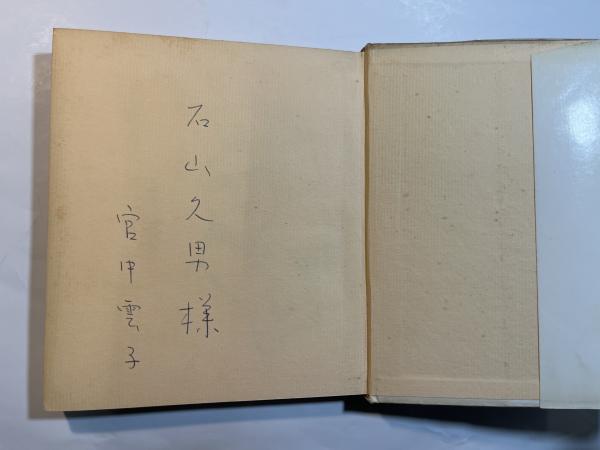 石山久男様
宮中雲子